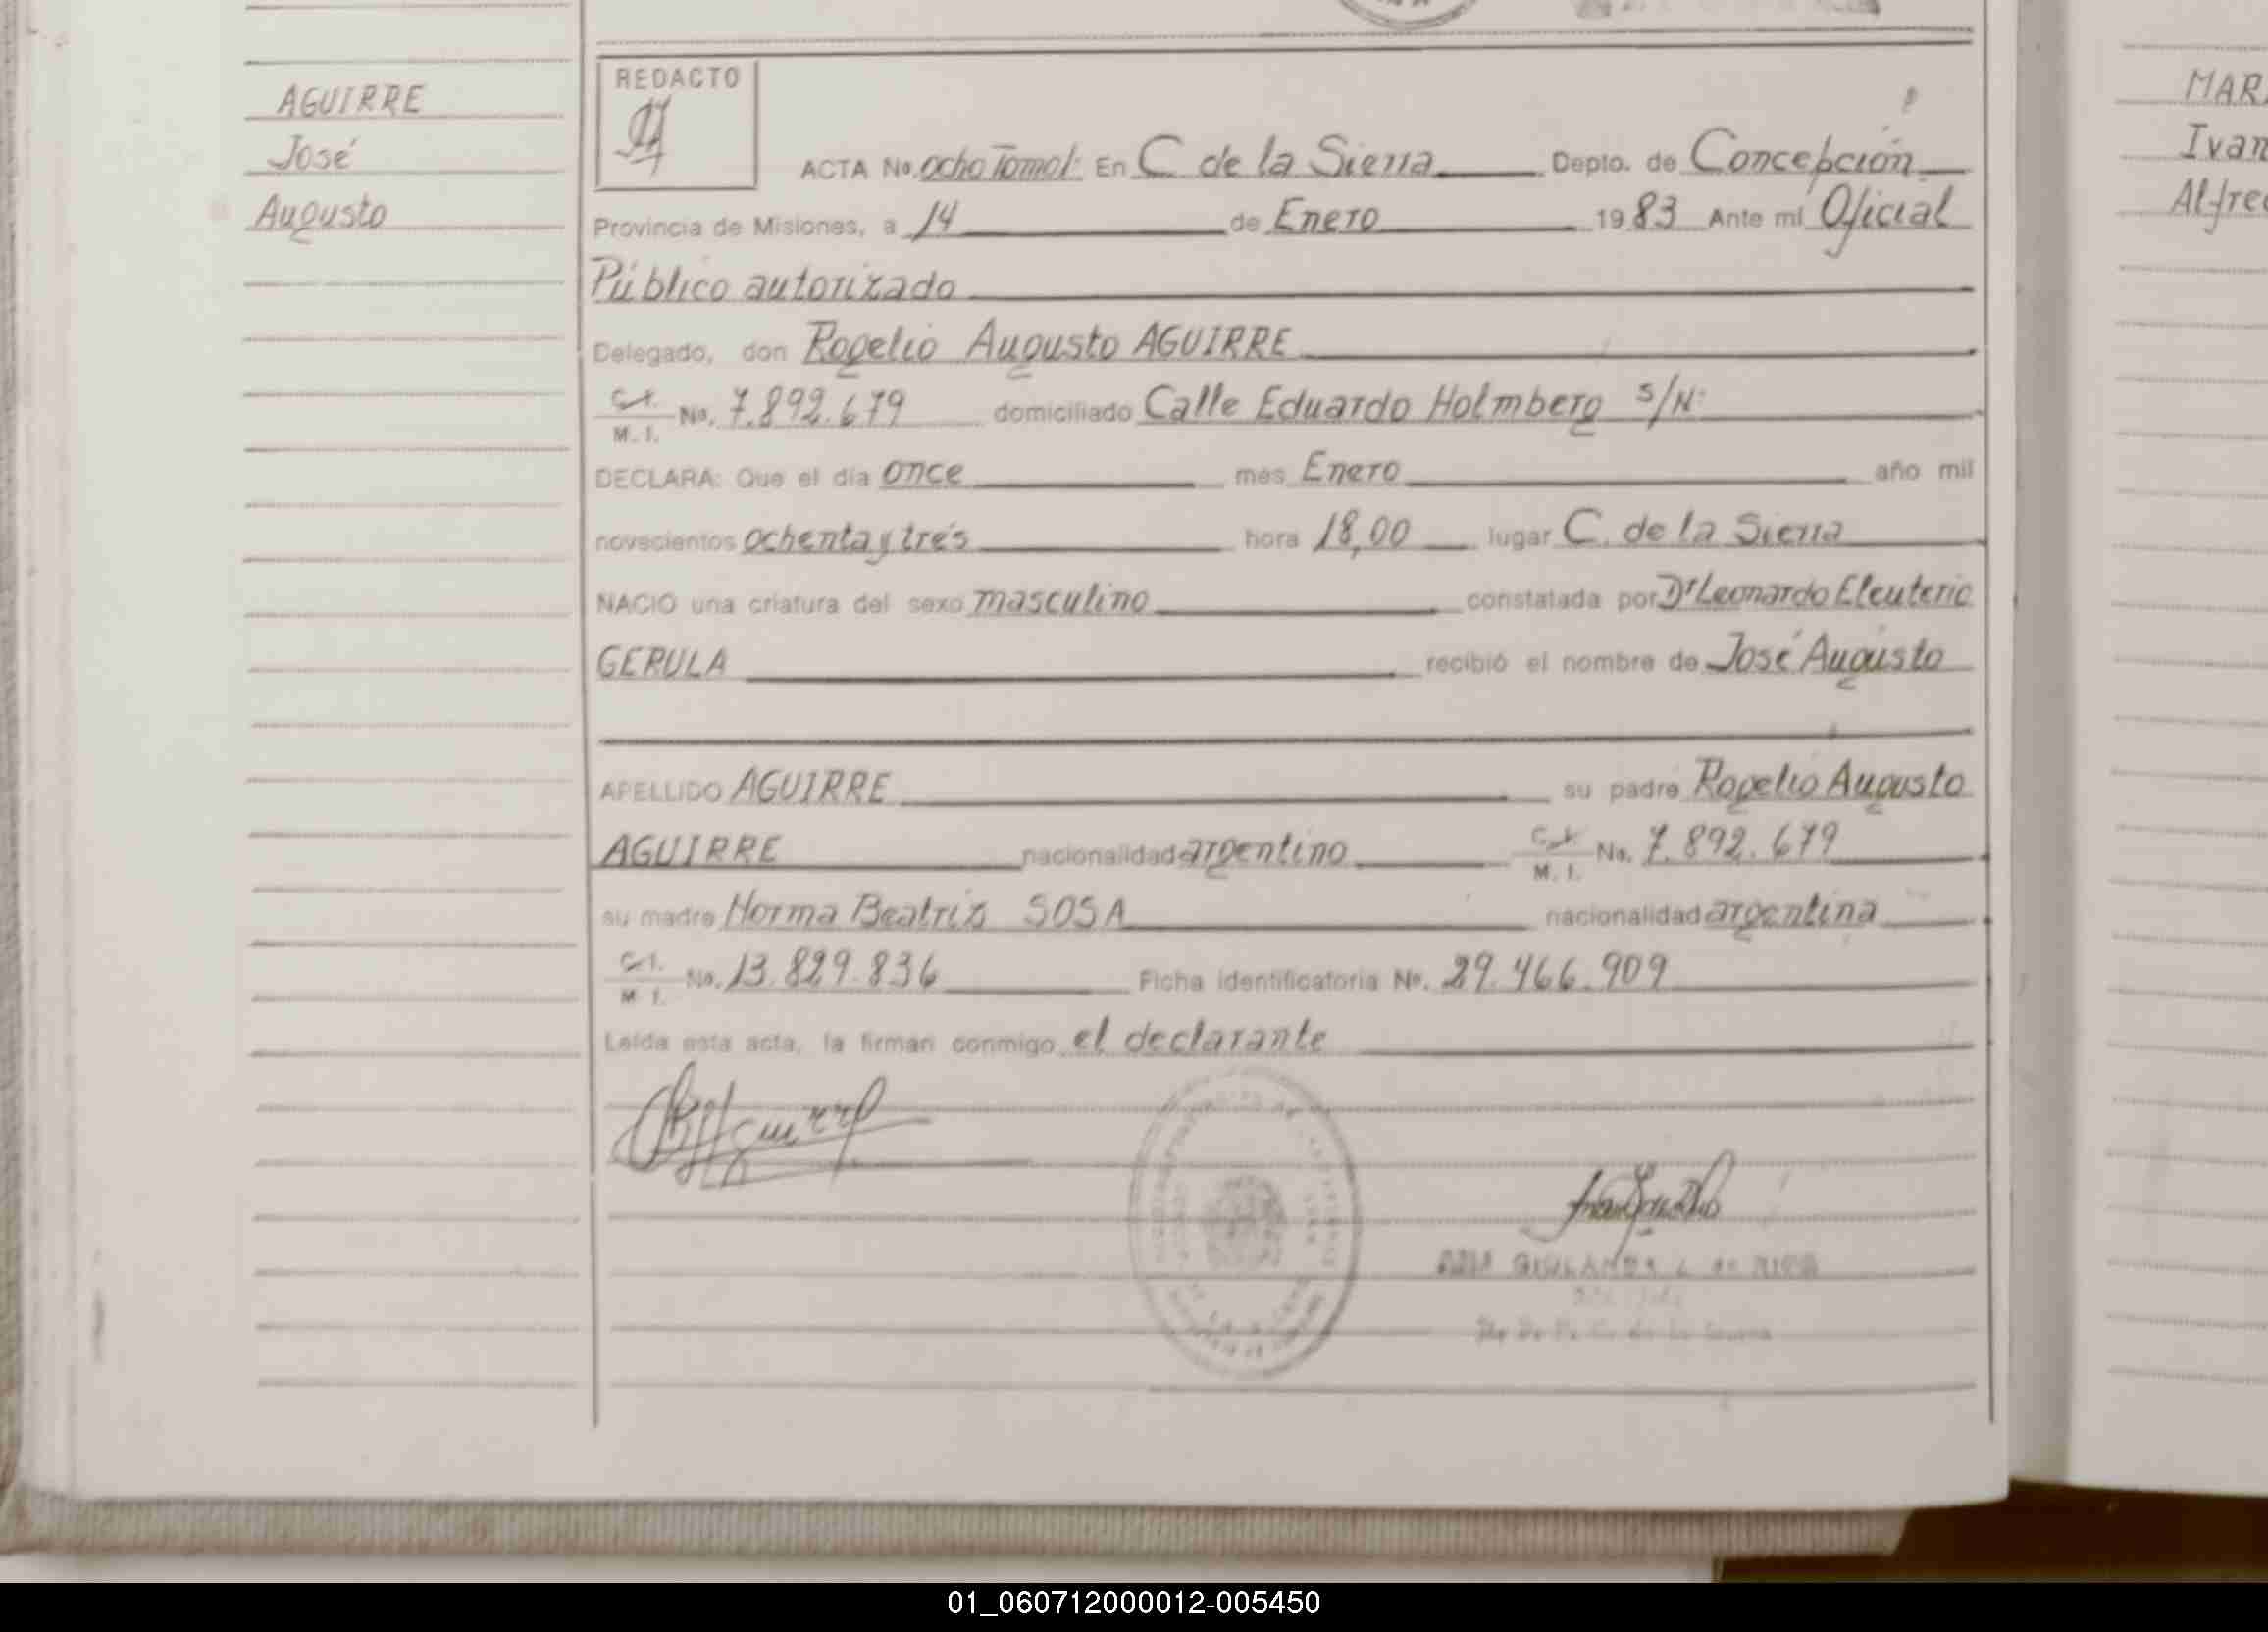 AGUIRRE
José
Augusto
REDACTO
ACTA No. ocho Tomo I: En C. de la Sierra Depto. de Concepción
Provincia de Misiones, a 14 de Enero 1983 Ante mí Oficial
Público autorizado
Delegado, don Rogelio Augusto AGUIRRE
C.I. M.I. No. 7.892.679 domiciliado Calle Eduardo Holmberg s/N:
DECLARA: Que el día once mes Enero año mil
novecientos ochenta y trés hora 18,00 lugar C. de la Sierra
NACIO una criatura del sexo masculino constatada por Dr Leonardo Eleuterio
GERULA recibió el nombre de José Augusto
APELLIDO AGUIRRE su padre Rogelio Augusto
AGUIRRE nacionalidad argentino C.I. M.I. No. 7.892.679
su madre Norma Beatriz SOSA nacionalidad argentina
C.I. M.I. No. 13.829.836 Ficha identificatoria No. 29.466.909
Leída esta acta, la firman conmigo el declarante
MAR
Ivan
Alfred
01_060712000012-005450